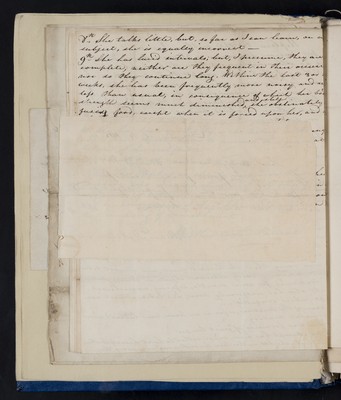 8th She talks little, but, so far as I can learn, on a
subject, she is equally incorrect —
9th She has lucid intervals, but, I presume, they are
complete, neither are they frequent in their occur
nor do they continue long. Within the last
weeks, she has been frequently more noisy and
less than usual, in consequence of which her
strength seems much diminished, she obstinately
food, except when it is forced upon her, and